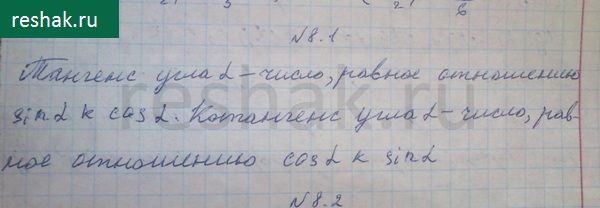 reshak.ru
N8.1
Тангенс угла α – число, равное отношению
sin α к cos α. Котангенс угла α – число, рав-
ное отношению cos α к sin α
N8.2